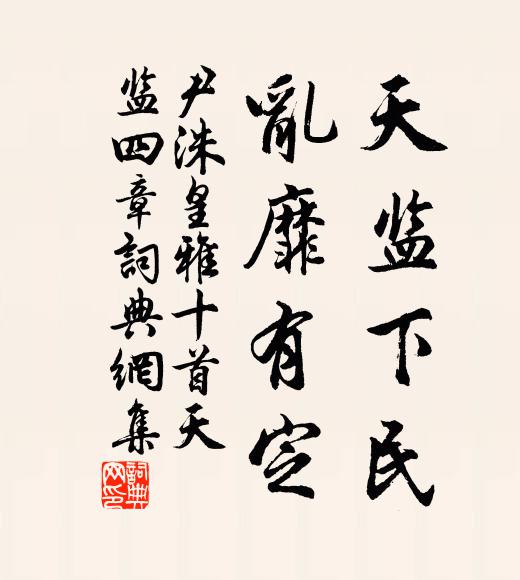 天监下民
亂靡有定
尹洙皇雅十首天
监四章詞典網集
詞典网印